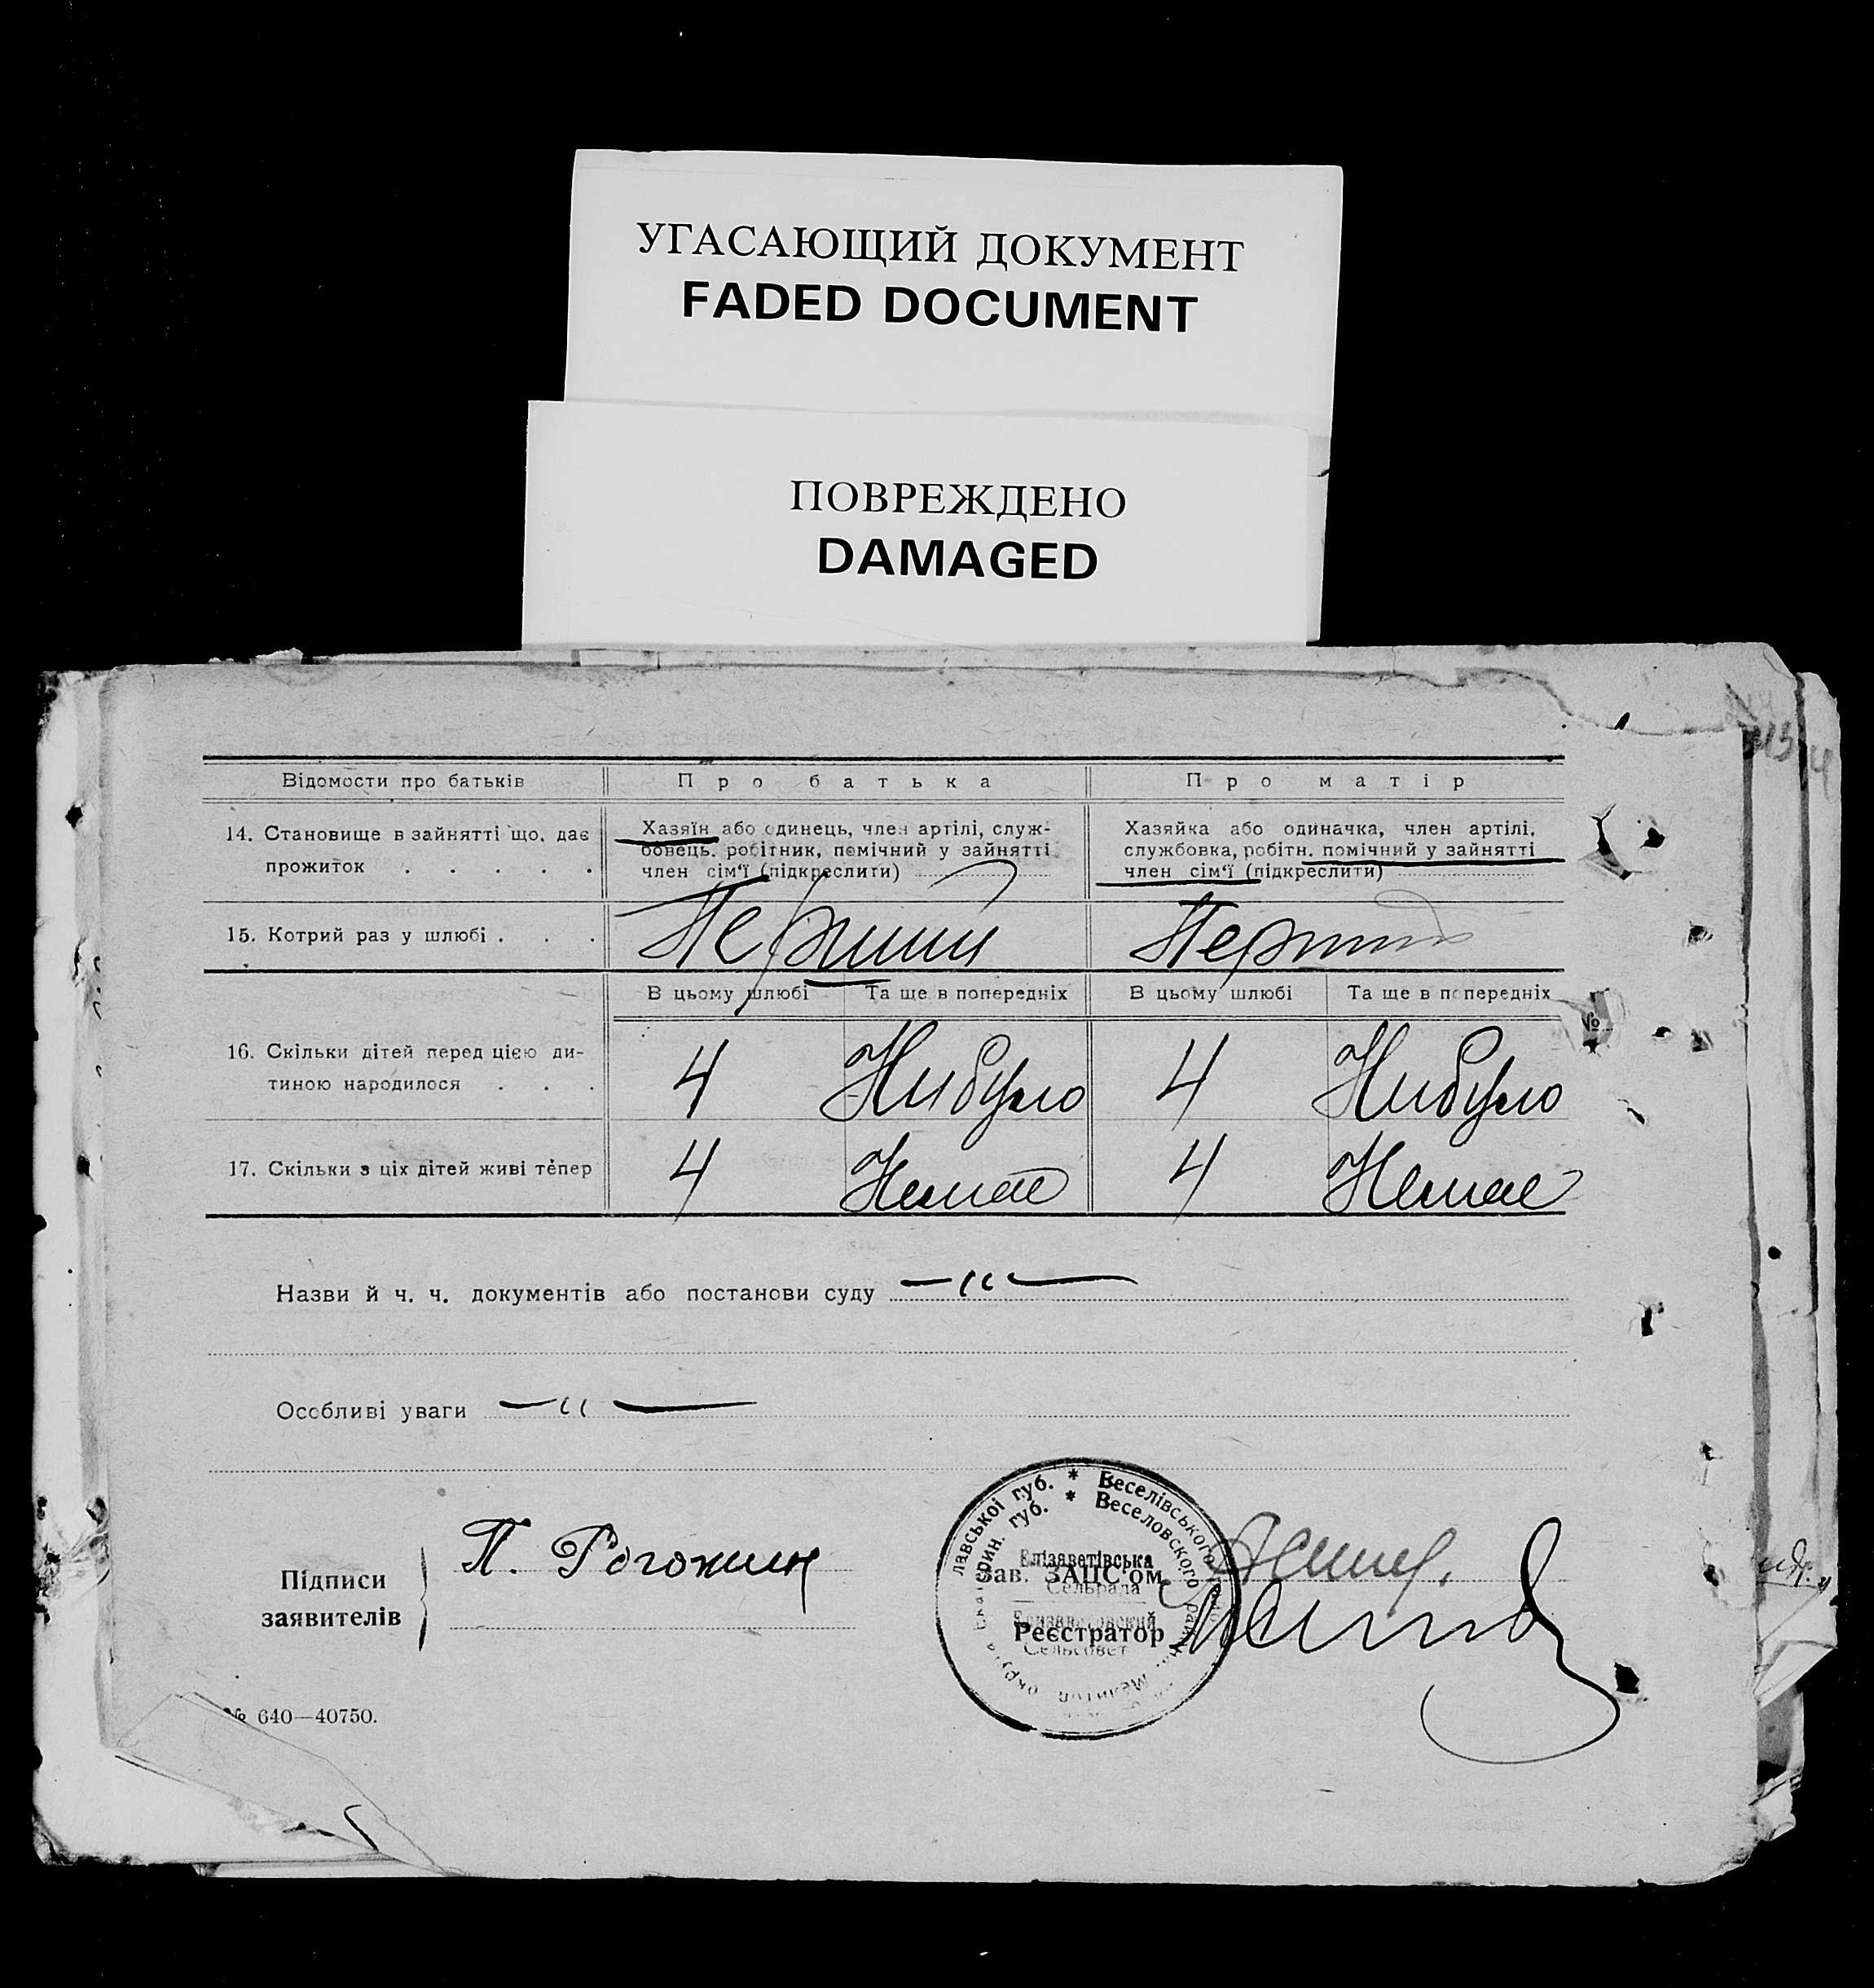 УГАСАЮЩИЙ ДОКУМЕНТ
FADED DOCUMENT
ПОВРЕЖДЕНО
DAMAGED
Відомости про батьків Про батька Про матір
14. Становище в зайнятті що, дає прожиток . . . . .
Хазяїн або одинець, член артілі, служ-
бовець, робітник, помічний у зайнятті
член сім'ї (підкреслити)
Хазяйка або одиначка, член артілі,
службовка, робітн. помічний у зайнятті
член сім'ї (підкреслити)
15. Котрий раз у шлюбі . . . Перший Перший
В цьому шлюбі Та ще в попередніх В цьому шлюбі Та ще в попередніх
№
16. Скільки дітей перед цією ди-
тиною народилося . . . 4 Нибуло 4 Нибуло
17. Скільки з ціх дітей живі тепер 4 Немае 4 Немае
Назви й ч. ч. документів або постанови суду — „ —
Особливі уваги — „ —
Підписи
заявителів
П. Рогожин
лавської губ. * Веселівського
Екатерин. губ. * Веселовского района
Елізаветівська
Сельрада
Елизаветовский
Сельсовет
Зав. ЗАПС'ом
Реєстратор
№ 640—40750.